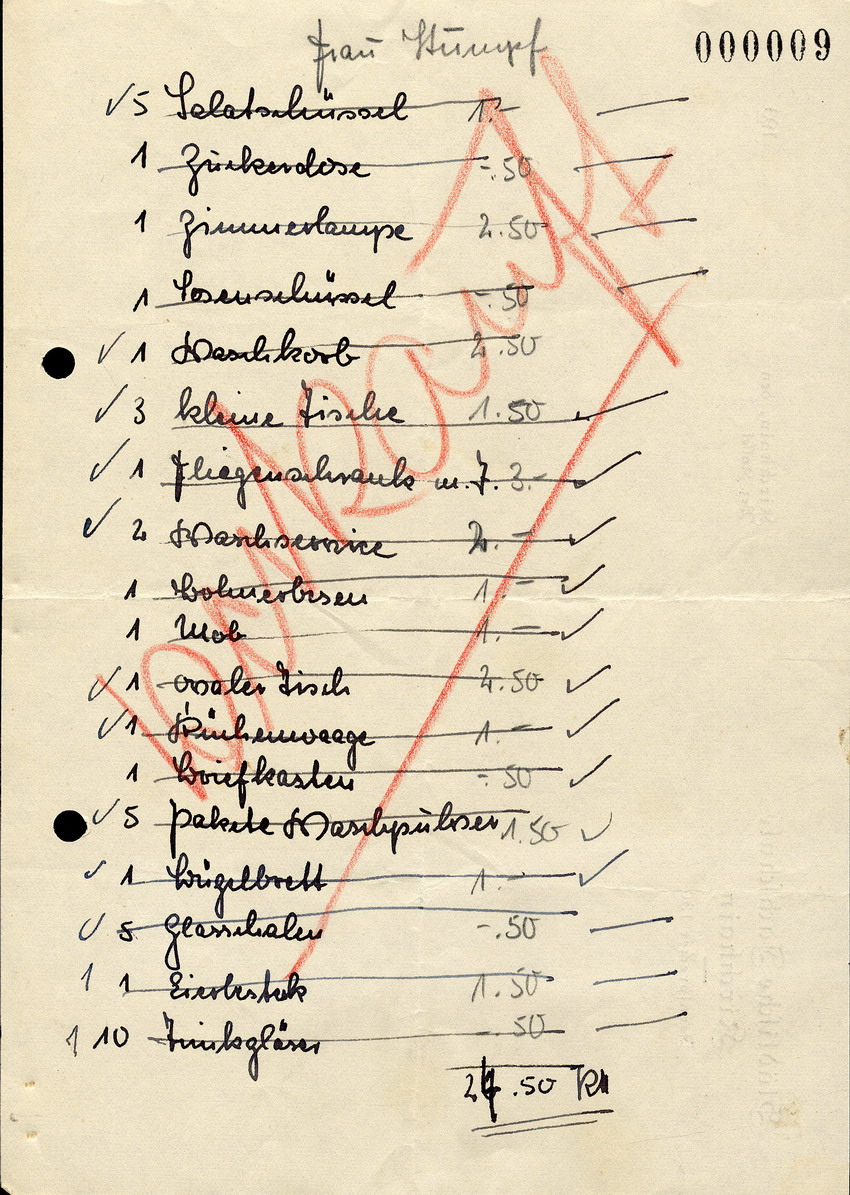 Frau Stumpf
000009
✓ 5 Salatschüssel 1.-
1 Zuckerdose -.50
1 Zimmerlampe 2.50
1 Sosenschüssel -.50
✓ 1 Waschkorb 2.50
✓ 3 kleine Tische 1.50 ✓
✓ 1 Fliegenschrank m. T. 3.- ✓
✓ 2 Waschservice 2.- ✓
1 Bohnerbesen 1.- ✓
1 Mob 1.- ✓
✓ 1 ovaler Tisch 2.50 ✓
✓ 1 Küchenwaage 1.- ✓
1 Briefkasten -.50 ✓
✓ 5 Pakete Waschpulver 1.50 ✓
✓ 1 Bügelbrett 1.- ✓
✓ 5 Glasschalen -.50
1 1 Eierbestek 1.50
1 10 Trinkgläser -.50
.50 RM